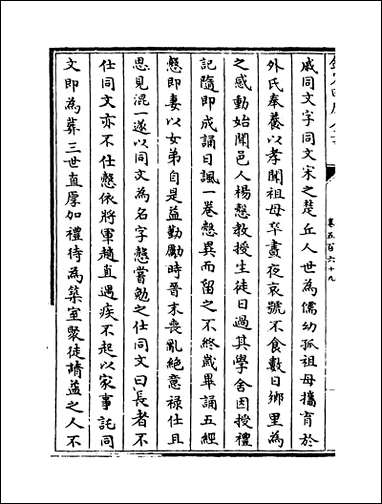 戚同文字同文宋之楚丘人世為儒幼孤祖母攜育於
外氏奉養以孝聞祖母卒晝夜哀號不食數日鄉里為
之感動始聞邑人楊慤教授生徒日過其學舍因授禮
記隨即成誦日諷一卷慤異而留之不終歲畢誦五經
慤即妻以女弟自是益勤勵時晉末喪亂絕意祿仕且
思見混一遂以同文為名字慤嘗勉之仕同文曰長者不
仕同文亦不仕慤依將軍趙直遇疾不起以家事託同
文即為葬三世直厚加禮待為築室聚徒請益之人不
卷五百六十九